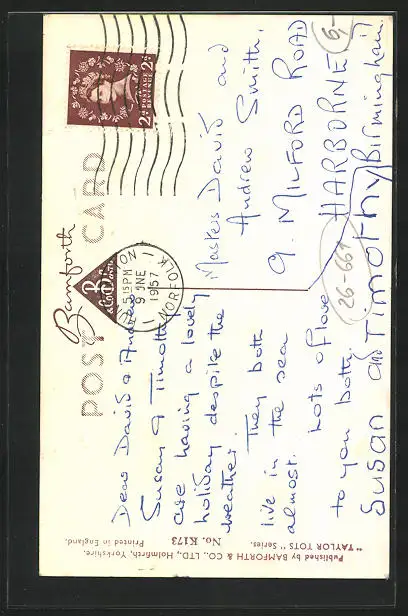 POST CARD
Bamforth
5.15 PM
9 JNE
1957
NORFOLK
POSTAGE
REVENUE
2D
2D
Dear David & Andrew
Susan & Timothy
are having a lovely
holiday despite the
weather.
They both
live in the sea
almost.
Lots of love
to you both.
Susan and Timothy
Masters David and
Andrew Smith,
9. MILFORD ROAD
HARBORNE
Birmingham
6-
26-661
Published by BAMFORTH & CO., LTD., Holmfirth, Yorkshire.
"TAYLOR TOTS" Series. No. K173 Printed in England.